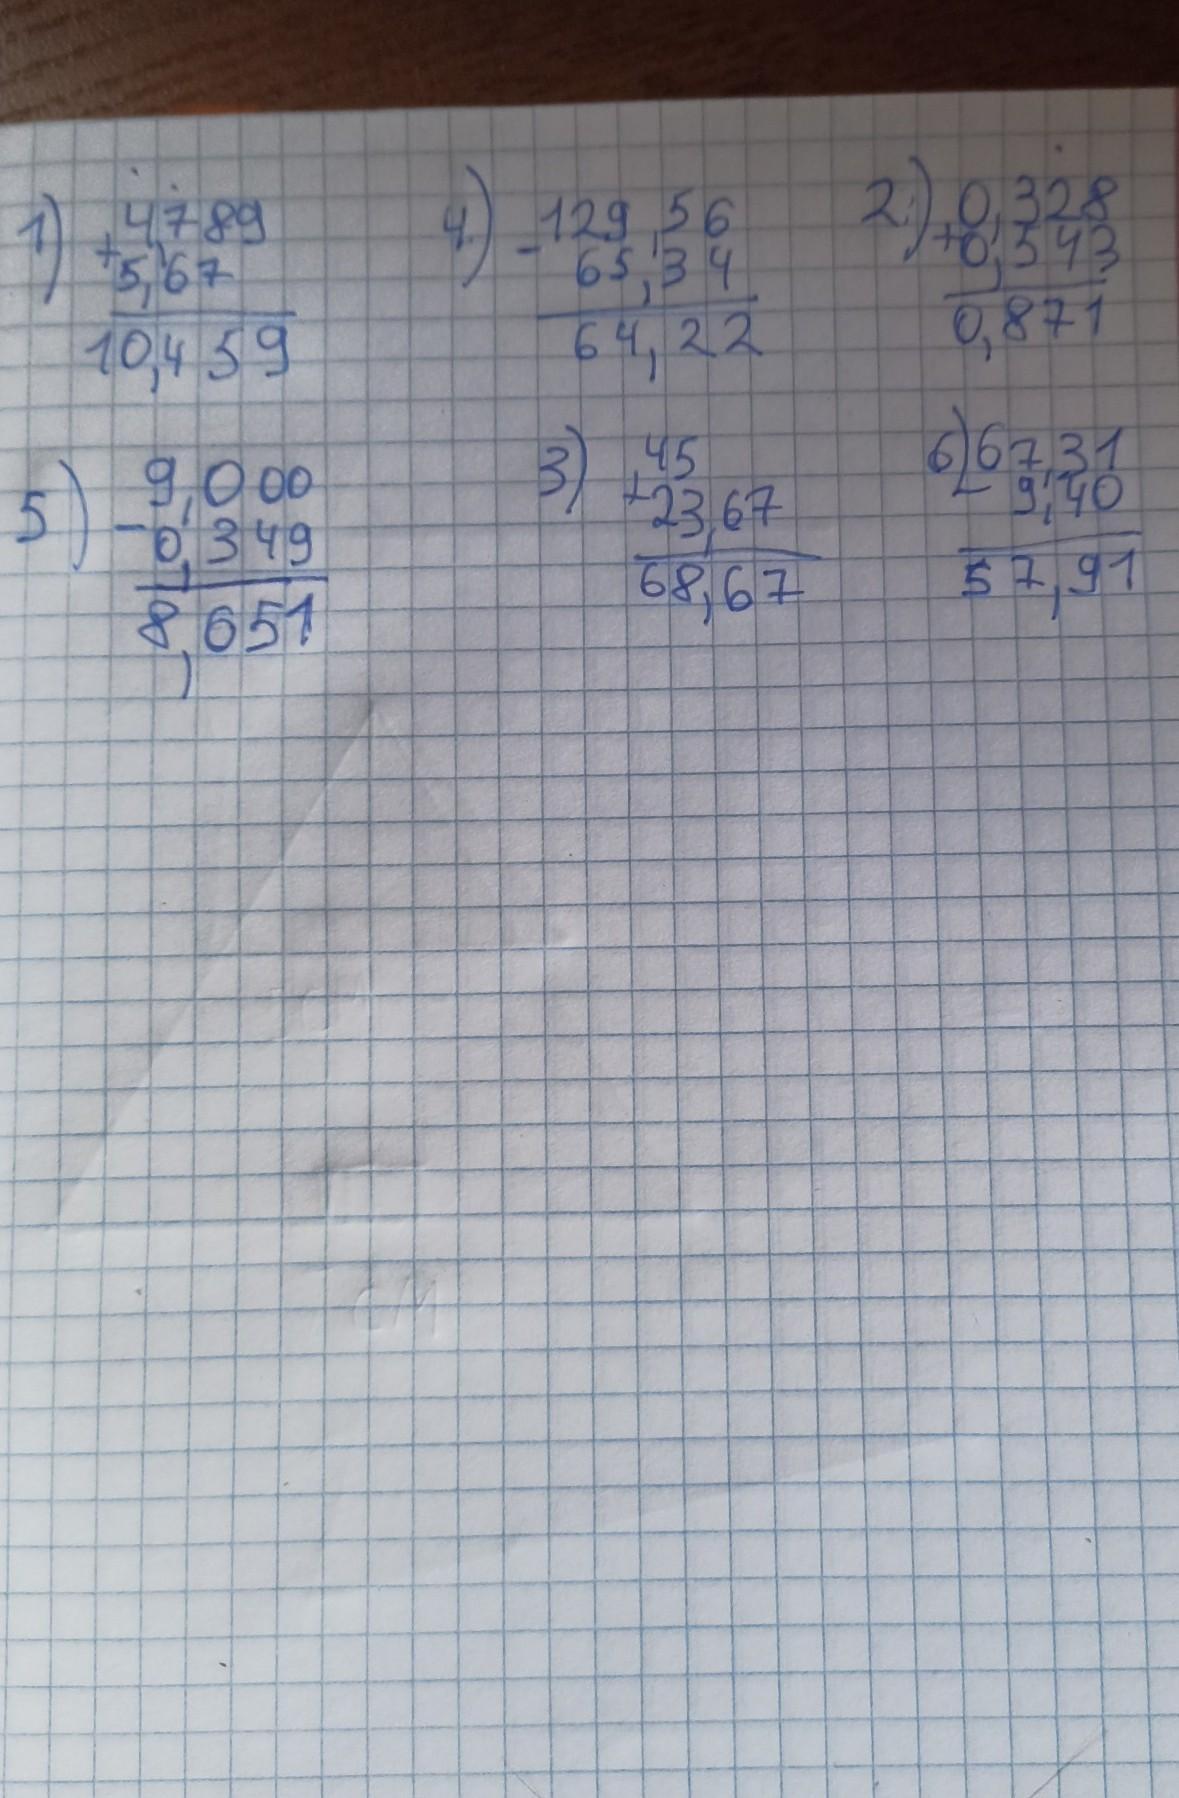 1) 4,789
+ 5,67
10,459
4.) 129,56
- 65,34
64,22
2.) 0,328
+ 0,543
0,871
5) 9,000
- 0,349
8,651
3) 45
+ 23,67
68,67
6) 67,31
- 9,40
57,91
CM